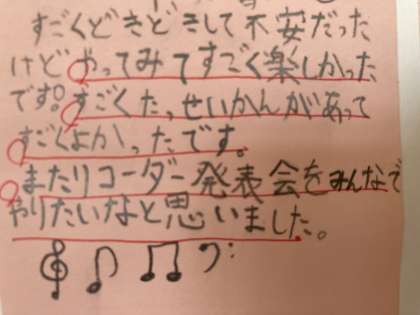 すごくどきどきして不安だった
けどやってみてすごく楽しかった
です。すごくたっせいかんがあって
すごくよかったです。
またリコーダー発表会をみんなで
やりたいなと思いました。